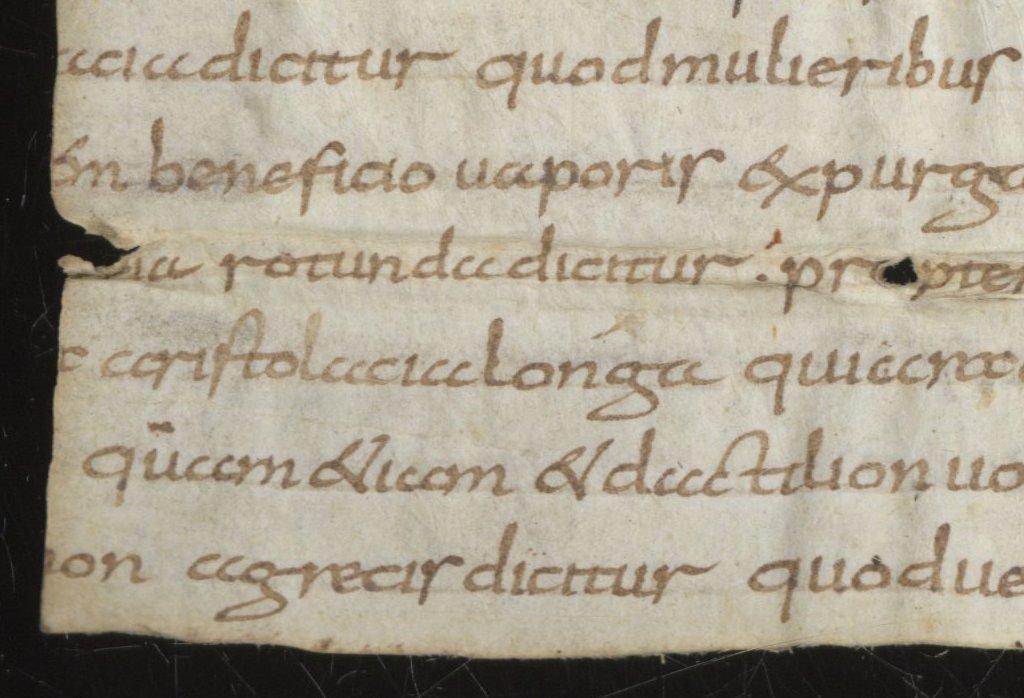 acia dicitur quod mulieribus
&m beneficio uaporis &xpurga
rotunda dicitur. propter
aristolacia longa quia
quam &iam & dactilion uo
non a grecis dicitur quod ue